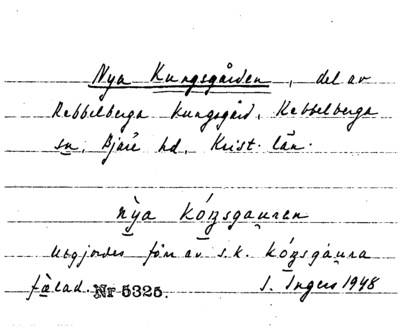 Nya Kungsgården, del av
Rebbelberga kungsgård, Rebbelberga
sn, Bjäre hd, Krist. län.
nỳa kóŋsgau̯ren
Utgjordes förr av s.k. kóŋsgau̯ra
fælad. Nr 5325. I. Ingers 1948